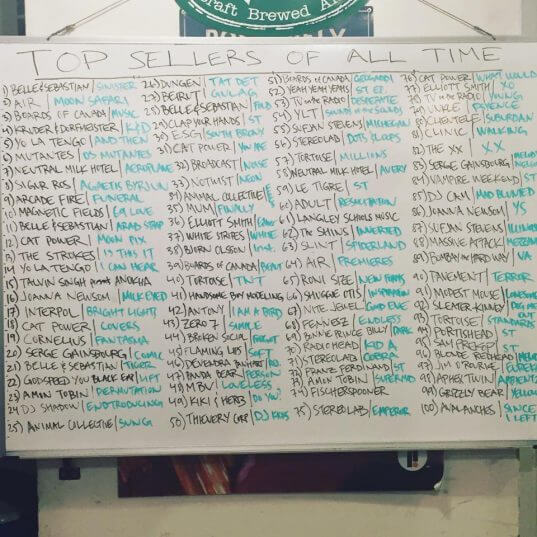 Craft Brewed A
TOP SELLERS OF ALL TIME
1) BELLE & SEBASTIAN / SINISTER
2) AIR / MOON SAFARI
3) BOARDS OF CANADA / MUSIC
4) KRUDER & DORFMEISTER / K&D
5) YO LA TENGO / AND THEN
6) MUTANTES / OS MUTANTES
7) NEUTRAL MILK HOTEL / AEROPLANE
8) SIGUR ROS / AGAETIS BYRJUN
9) ARCADE FIRE / FUNERAL
10) MAGNETIC FIELDS / 69 LOVE
11) BELLE & SEBASTIAN / ARAB STRAP
12) CAT POWER / MOON PIX
13) THE STROKES / IS THIS IT
14) YO LA TENGO / I CAN HEAR
15) TALVIN SINGH PRESENT ANOKHA
16) JOANNA NEWSOM / MILK EYED
17) INTERPOL / BRIGHT LIGHTS
18) CAT POWER / COVERS
19) CORNELIUS / FANTASMA
20) SERGE GAINSBOURG / COMIC
21) BELLE & SEBASTIAN / TIGER
22) GODSPEED YOU BLACK EMP / LIFT
23) AMON TOBIN / PERMUTATION
24) DJ SHADOW / ENDTRODUCING
25) ANIMAL COLLECTIVE / SUNG
26) DUNGEN / TAT DET
27) BEIRUT / GULAG
28) BELLE & SEBASTIAN / FOLD
29) CLAP YOUR HANDS / ST
30) ESG / SOUTH BRONX
31) CAT POWER / YOU ARE
32) BROADCAST / NOISE
33) NOTWIST / NEON
34) ANIMAL COLLECTIVE /
35) MUM / FINALLY
36) ELLIOTT SMITH /
37) WHITE STRIPES / WHITE
38) BJORN OLSSON / INST.
39) BOARDS OF CANADA / BEAUT
40) TORTOISE / TNT
41) HANDSOME BOY MODELING
42) ANTONY / I AM A BIRD
43) ZERO 7 / SIMPLE
44) BROKEN SOCIAL / FORGOT
45) FLAMING LIPS / SOFT
46) DEVENDRA BANHART / RE
47) PANDA BEAR / PERSON
48) MBV / LOVELESS
49) KIKI & HERB / DO YOU
50) THIEVERY CORP / DJ KICKS
51) BOARDS OF CANADA / GEOGADDI
52) YEAH YEAH YEAHS / ST EP
53) TV ON THE RADIO / DESPERATE
54) YLT / SOUNDS OF THE SOUNDS
55) SUFJAN STEVENS / MICHIGAN
56) STEREOLAB / DOTS & LOOPS
57) TORTOISE / MILLIONS
58) NEUTRAL MILK HOTEL / AVERY
59) LE TIGRE / ST
60) ADULT / RESUSCITATION
61) LANGLEY SCHOOLS MUSIC
62) THE SHINS / INVERTED
63) SLINT / SPIDERLAND
64) AIR / PREMIERES
65) RONI SIZE / NEW FORMS
66) SHUGGIE OTIS / INSPIRATION
67) NITE JEWEL / GOOD EVE
68) FENNESZ / ENDLESS
69) BONNIE PRINCE BILLY / DARK
70) RADIOHEAD / KID A
71) STEREOLAB / COBRA
72) FRANZ FERDINAND / ST
73) AMON TOBIN / SUPERMOD
74) FISCHERSPOONER
75) STEREOLAB / EMPEROR
76) CAT POWER / WHAT WOULD
77) ELLIOTT SMITH / XO
78) TV ON THE RADIO / YOUNG
79) UNKLE / PSYENCE
80) CLIENTELE / SUBURBAN
81) CLINIC / WALKING
82) THE XX / XX
83) SERGE GAINSBOURG / MELODY NELSON
84) VAMPIRE WEEKEND / ST
85) DJ CAM / MAD BLUNTED
86) JOANNA NEWSOM / YS
87) SUFJAN STEVENS / ILLINOIS
88) MASSIVE ATTACK / MEZZAN
89) BOMBAY THE HARD WAY / VA
90) PAVEMENT / TERROR
91) MODEST MOUSE / LONESOME
92) SLEATER-KINNEY / DIG ME OUT
93) TORTOISE / STANDARDS
94) PORTISHEAD /
95) SAM PREKOP / ST
96) BLONDE REDHEAD / MELO
97) JIM O'ROURKE / EUREKA
98) APHEX TWIN / AMBIENT
99) GRIZZLY BEAR / YELLOW
100) AVALANCHES / SINCE I LEFT